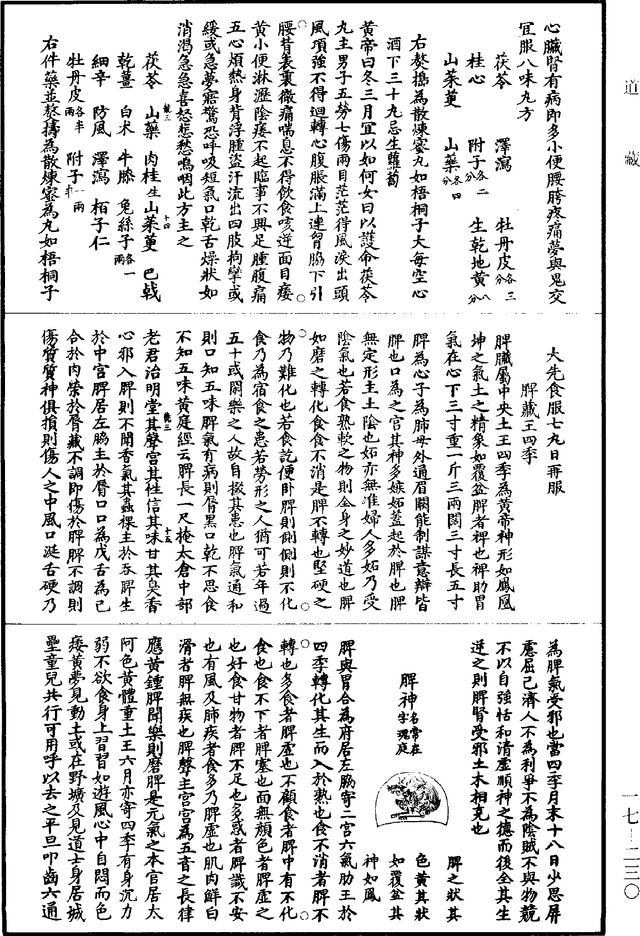 道藏
心臟腎有病即多小便腰胯疼痛夢與鬼交
宜服八味丸方
茯苓 澤瀉 牡丹皮各三分
桂心 附子各二分 生乾地黃八分
山茱萸 山藥各四分
右㕮搗為散煉蜜丸如梧桐子大每空心
酒下三十丸忌生蘿蔔
黃帝曰冬三月宜以如何女曰以護命茯苓
丸主男子五勞七傷兩目茫茫得風淚出頭
風項強不得迴轉心腹脹滿上連胷脇下引
腰背表裏微痛喘息不得飲食咳逆面目痿
黃小便淋瀝陰痿不起臨事不興足腫腹痛
五心煩熱身背浮腫盜汗流出四肢拘攣或
緩或急夢寤驚恐呼吸短氣口乾舌燥狀如
消渴急急喜怒悲愁嗚咽此方主之
茯苓 山藥 肉桂 山茱萸 巴戟
乾薑 白朮 牛膝 兔絲子各一兩
細辛 防風 澤瀉 栢子仁
牡丹皮各半兩 附子一兩半
右件藥並㕮擣為散煉蜜為丸如梧桐子
大先食服七丸日再服
脾藏王四季
脾臟屬中央土王四季為黃帝神形如鳳鳳
坤之氣土之精象如覆盆脾者裨也裨助胃
氣在心下三寸重一斤三兩闊三寸長五寸
脾為心子為肺母外通眉闕能制謀意辯皆
脾也口為之宮其神多嫉妬蓋起於脾也脾
無定形主土陰也妬亦無准婦人多妬乃受
陰氣也若食熟軟之物則全身之妙道也脾
如磨之轉化食食不消是脾不轉也堅硬之
物乃難化也若食訖便卧脾則側側則不化
食乃為宿食之患若勞形之人猶可若年過
五十或閑樂之人故自掇其患也脾氣通和
則口知五味脾氣有病則脣黑口乾不思食
不知五味黃庭經云脾長一尺掩太倉中部
老君治明堂其聲宮其性信其味甘其臭香
心邪入脾則不聞香氣其蟲倮主於吞脾生
於中宮脾居左脇主於脣口口為戊舌為己
合於肉榮於脣藏不調即傷於脾脾不調則
傷質質神俱損則傷人之中風口涎舌硬乃
為脾氣受邪也當四季月末十八日少思屏
慮屈己濟人不為利爭不為陰賊不與物競
不以自強恬和清虛順神之德而後全其生
逆之則脾腎受邪土木相克也
脾之狀其
色黃其狀
如覆盆其
神如鳳
脾神名常在字魂庭
脾與胃合為府居左脇寄二宮六氣助王於
四季轉化其生而入於熱也食不消者脾不
轉也多食者脾虛也不顧食者脾中有不化
食也食不下者脾塞也面無顏色者脾虛之
也好食甘物者脾不足也多惑者脾識不安
也有風及肺疾者食多乃脾虛也肌肉鮮白
滑者脾無疾也脾聲主宮宮為五音之長律
應黃鍾脾聞樂則磨脾是元氣之本宮居太
阿色黃體重土王六月亦寄四季有身沉力
弱不欲食身上習習如遊風心中自悶而色
痿黃夢見動土或在野壙及見道士身居城
壘童兒共行可用呼以去之平旦叩齒六通
一七—二三〇